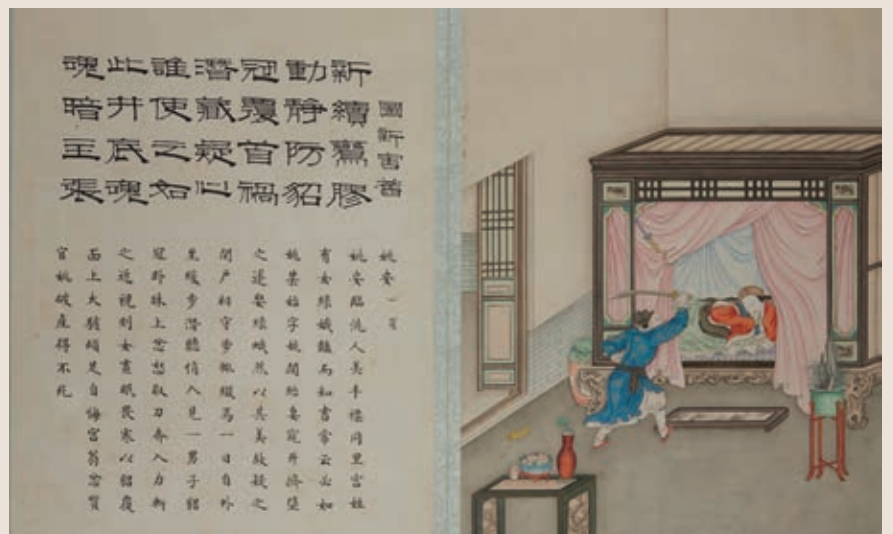 新續鸞膠
動靜防貂
冠覆首禍
潛藏疑心
誰使之如
此井底魂
魂暗主張
姚安
姚安臨洮人美丰標同里宮姓
有女綠娥豔而知書常云必如
姚某始字姚聞紿妻窺井擠墮
之遂娶綠娥然以其美故疑之
閉户相守步輒綴焉一日自外
至緩步潛聽悄入見一男子貂
冠卧牀上忿怒取刀奔入力斬
之近視則女晝眠畏寒以貂覆
面上大駭頓足自悔宮翁忿質
官姚破產得不死